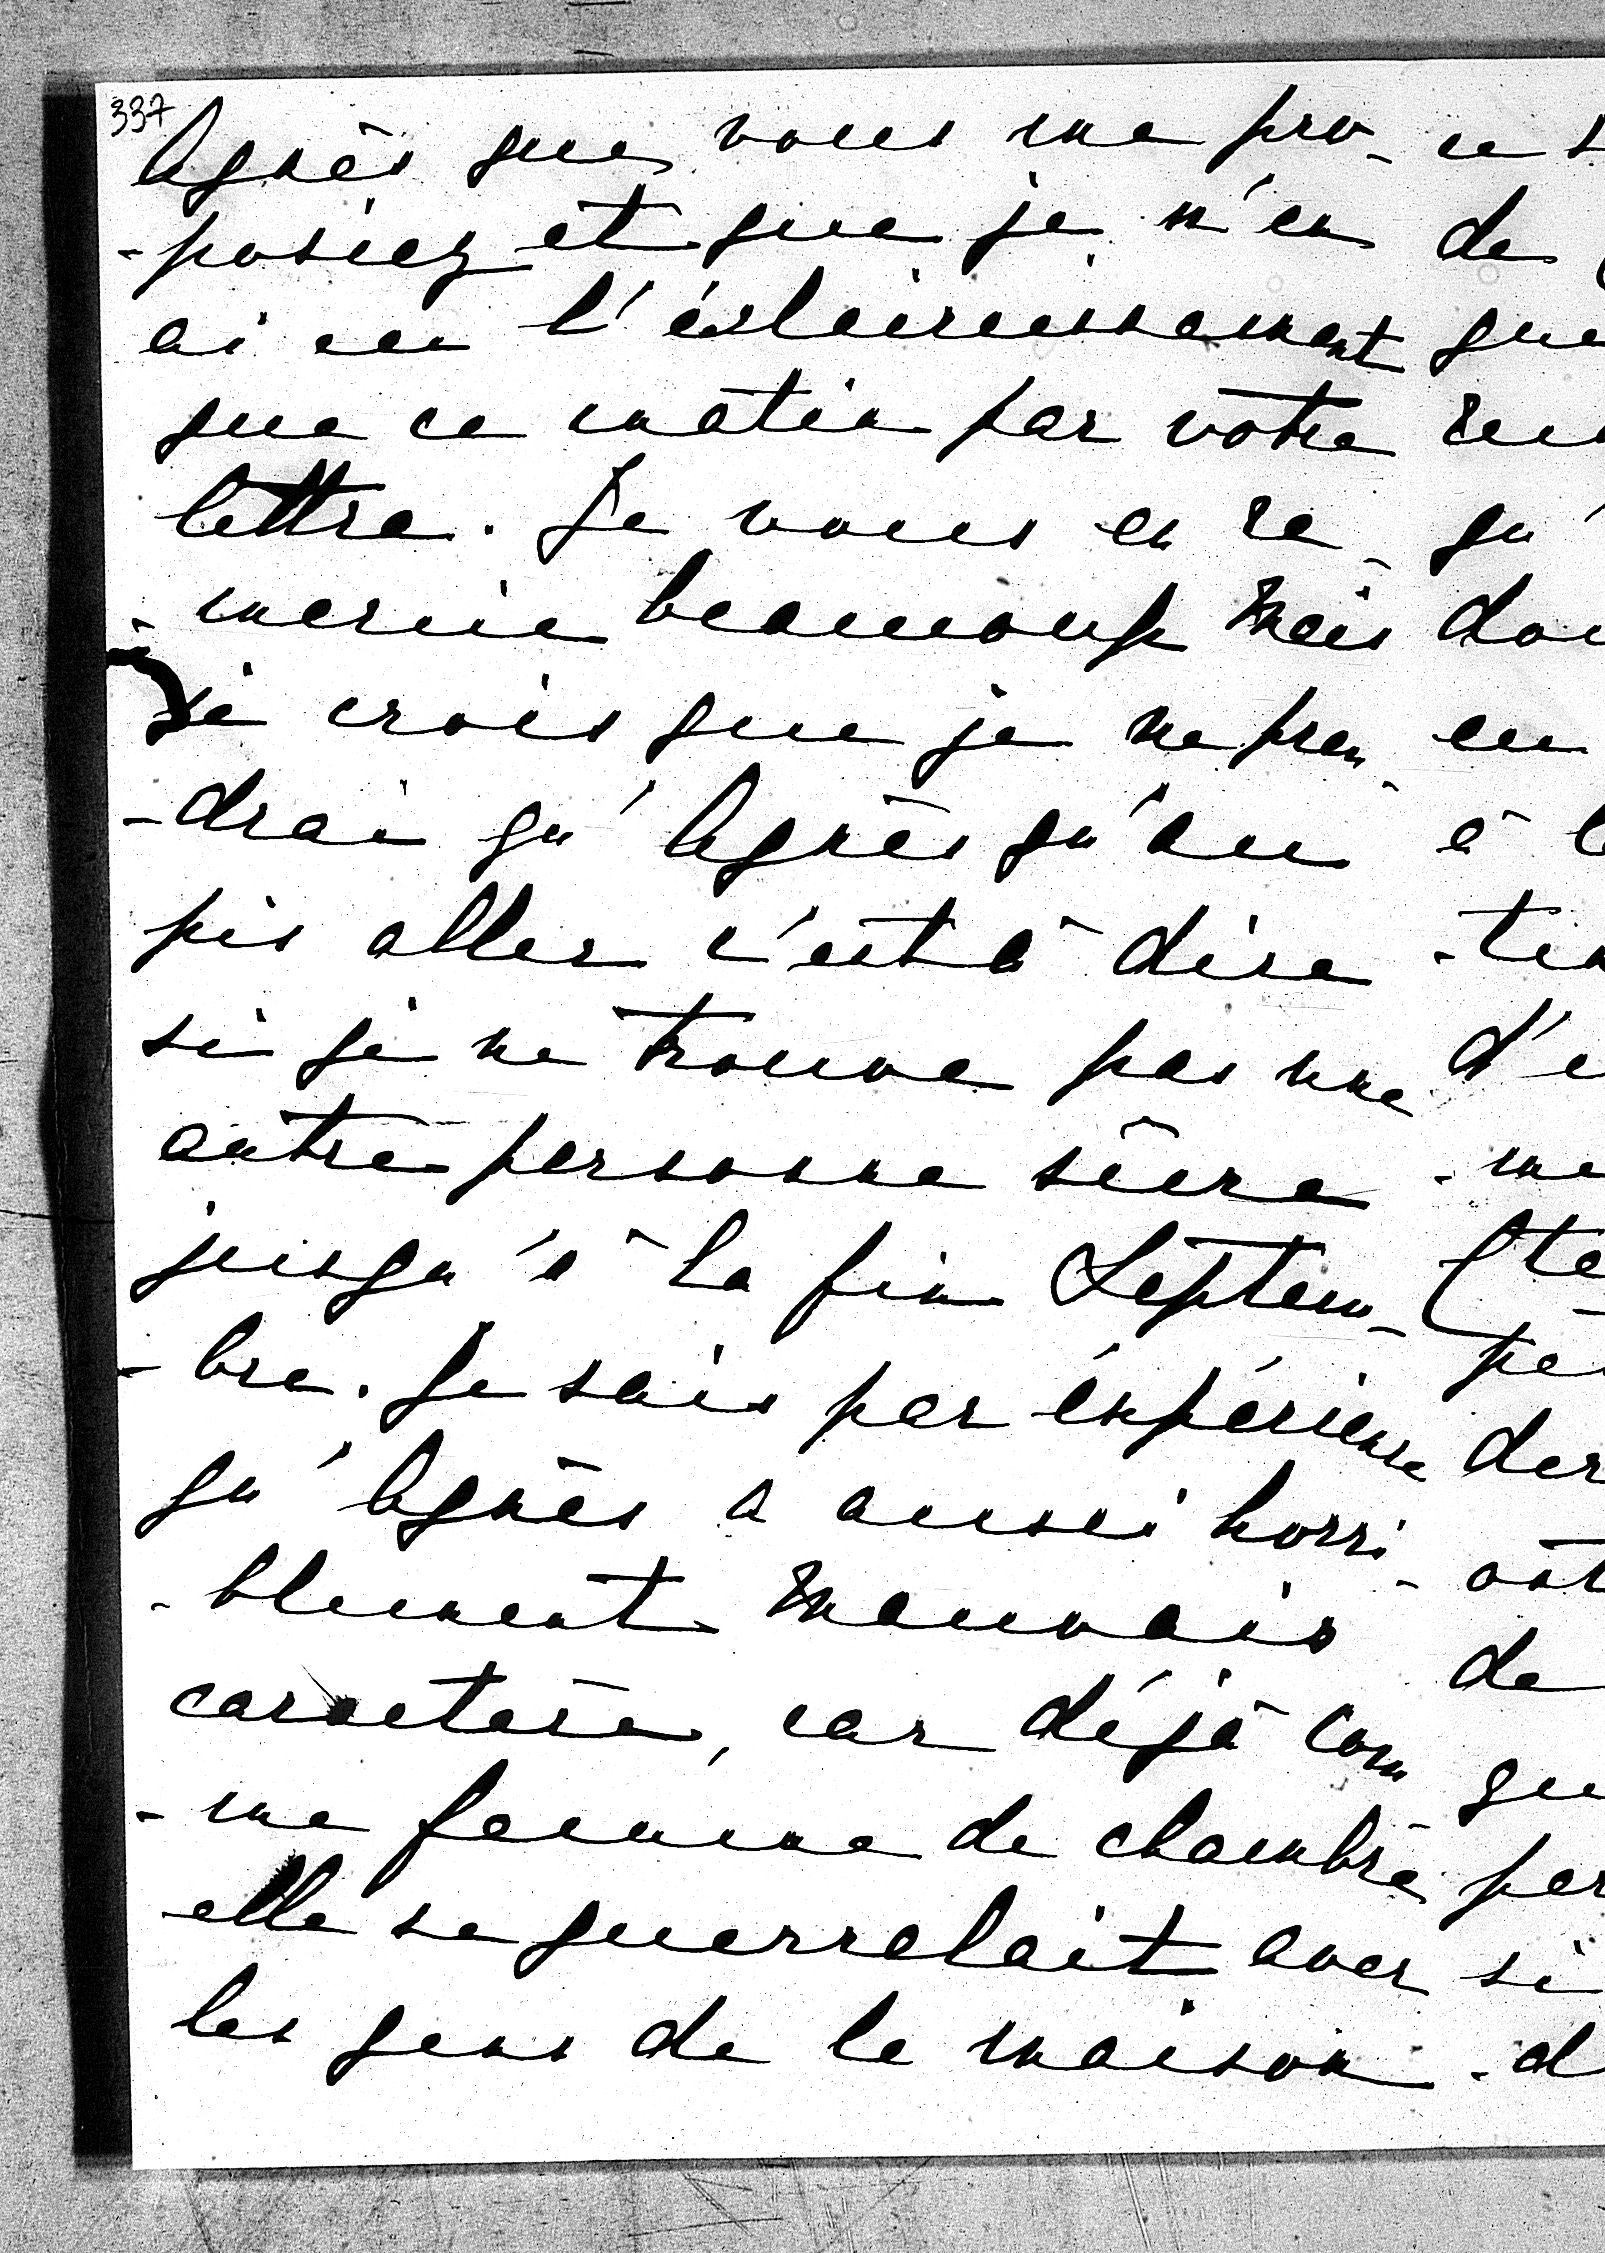 337
Agnès que vous me pro-
-posiez et que je n'en
ai eu l'éclaircissement
que ce matin par votre
lettre. Je vous en re-
-mercie beaucoup mais
je crois que je ne pren-
-drai qu'Agnès qu'au
pis aller c'est à dire
si je ne trouve pas une
autre personne sûre
jusqu'à la fin Septem-
-bre. Je sais par expérience
qu'Agnès a aussi horri-
-blement mauvais
caractère, car déjà com
-me femme de chambre
elle se querrelait avec
les gens de la maison.
de
que
qu'
en
à
d'
de
si